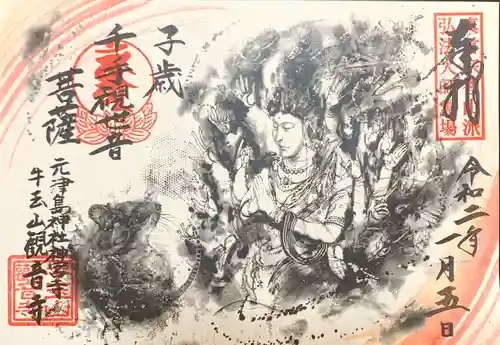 奉拝
令和二年一月五日
子歳
千手観世音
菩薩
元津島神社神宮寺
牛玉山観音寺